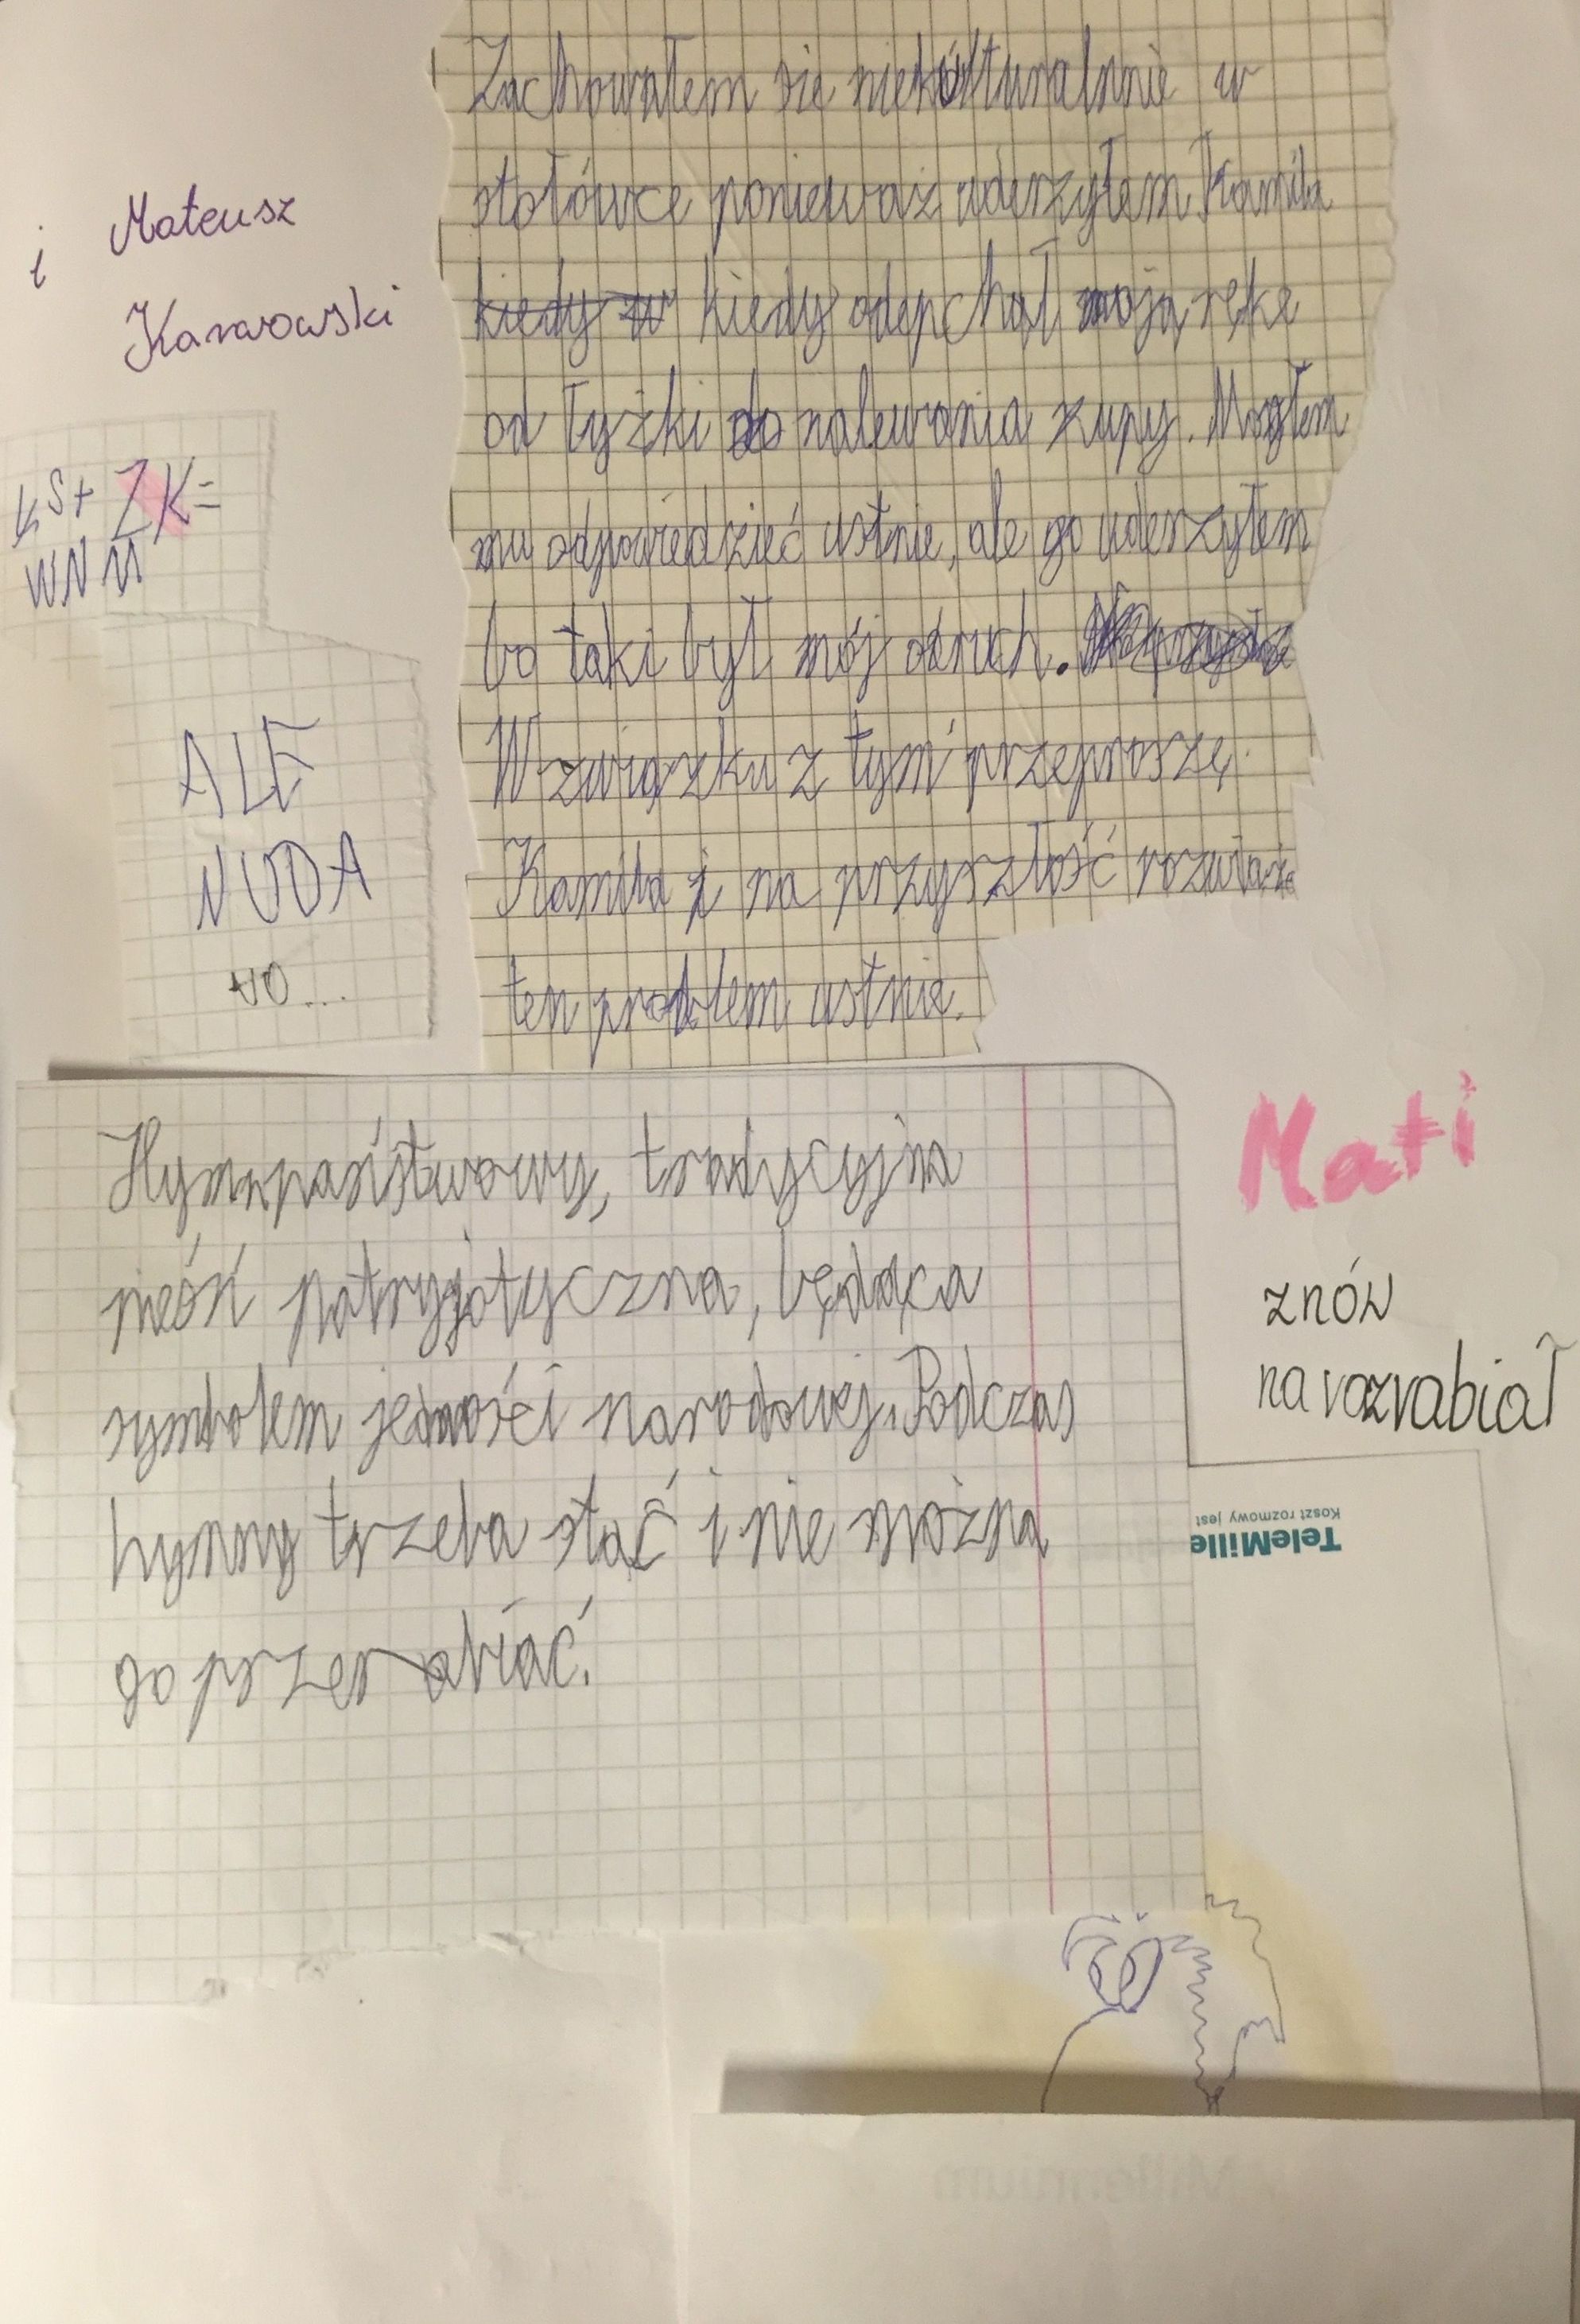 Zachowałem się niekulturalnnie w
stołówce ponieważ uderzyłem Kamila
kiedy w kiedy odepchał moją rękę
od łyżki do nalewania zupy. Mogłem
mu odpowiedzieć ustnie, ale go uderzyłem
bo taki był mój odruch.
W związku z tym przeproszę
Kamila i na przyszłość rozwiąże
ten problem ustnie.
i Mateusz
Karwowski
KS+ ZK=
WNM
ALE
NUDA
no...
Hymn państwowy, tradycyjna
pieśń patryjotyczna, będąca
symbolem jedności narodowej. Podczas
hymny trzeba stać i nie można
go przerabiać.
Mati
znów
narozrabiał
TeleMille
Koszt rozmowy jest
Millennium